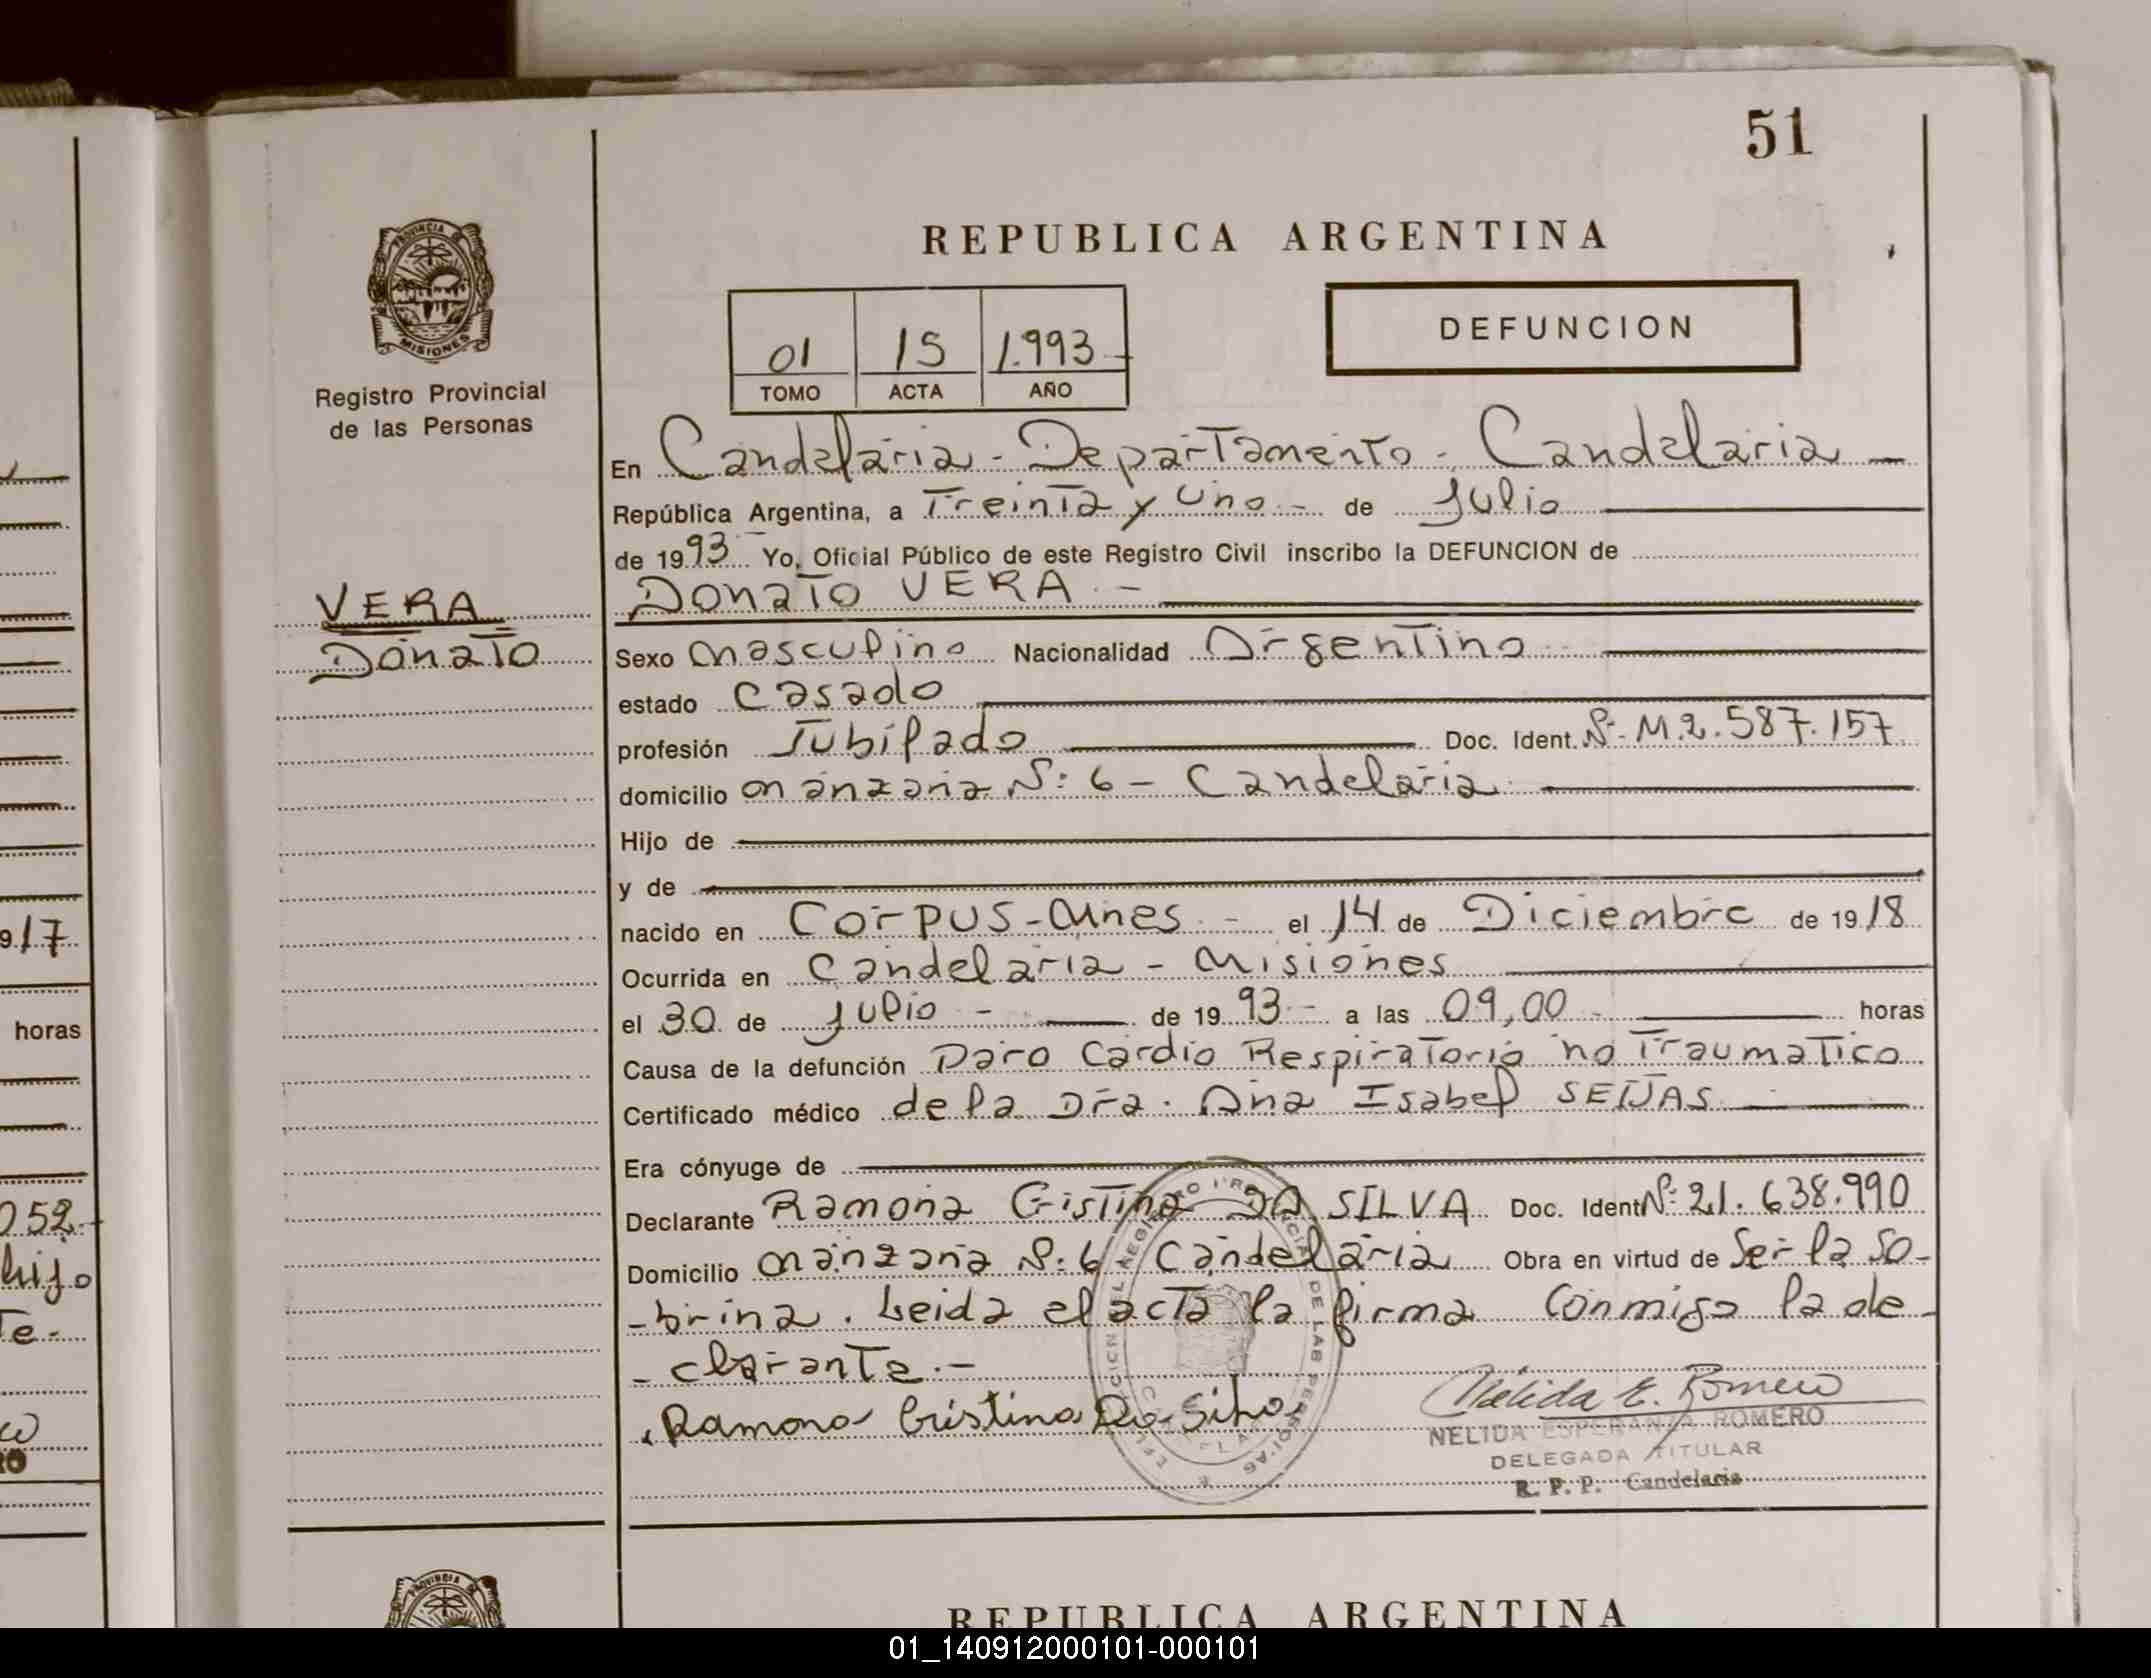 51
REPUBLICA ARGENTINA
PROVINCIA DE
MISIONES
Registro Provincial
de las Personas
01 15 1.993
TOMO ACTA AÑO
DEFUNCION
En Candelaria - Departamento - Candelaria -
República Argentina, a Treinta y Uno - de Julio
de 1993 Yo, Oficial Público de este Registro Civil inscribo la DEFUNCION de
VERA
DONATO
DONATO VERA -
Sexo masculino Nacionalidad Argentino
estado casado
profesión Jubilado Doc. Ident. Nº M.2.587.157
domicilio manzana Nº: 6 - Candelaria
Hijo de
y de
nacido en Corpus - Mnes - el 14 de Diciembre de 1918
Ocurrida en Candelaria - Misiones
el 30 de Julio - de 1993 - a las 09,00 horas
Causa de la defunción Paro Cardio Respiratorio no Traumatico
Certificado médico de la Dra. Ana Isabel SEIJAS
Era cónyuge de
Declarante Ramona Cristina DA SILVA Doc. Ident Nº: 21.638.990
Domicilio manzana Nº: 6 - Candelaria Obra en virtud de Ser la So-
-brina. Leida el acta la firma conmigo la de-
-clarante.-
Ramona Cristina Da Silva
Nélida E. Romero
NELIDA ESPERANZA ROMERO
DELEGADA TITULAR
R. P. P. Candelaria
9 17
horas
052
hijo
Te-
REPUBLICA ARGENTINA
01_140912000101-000101